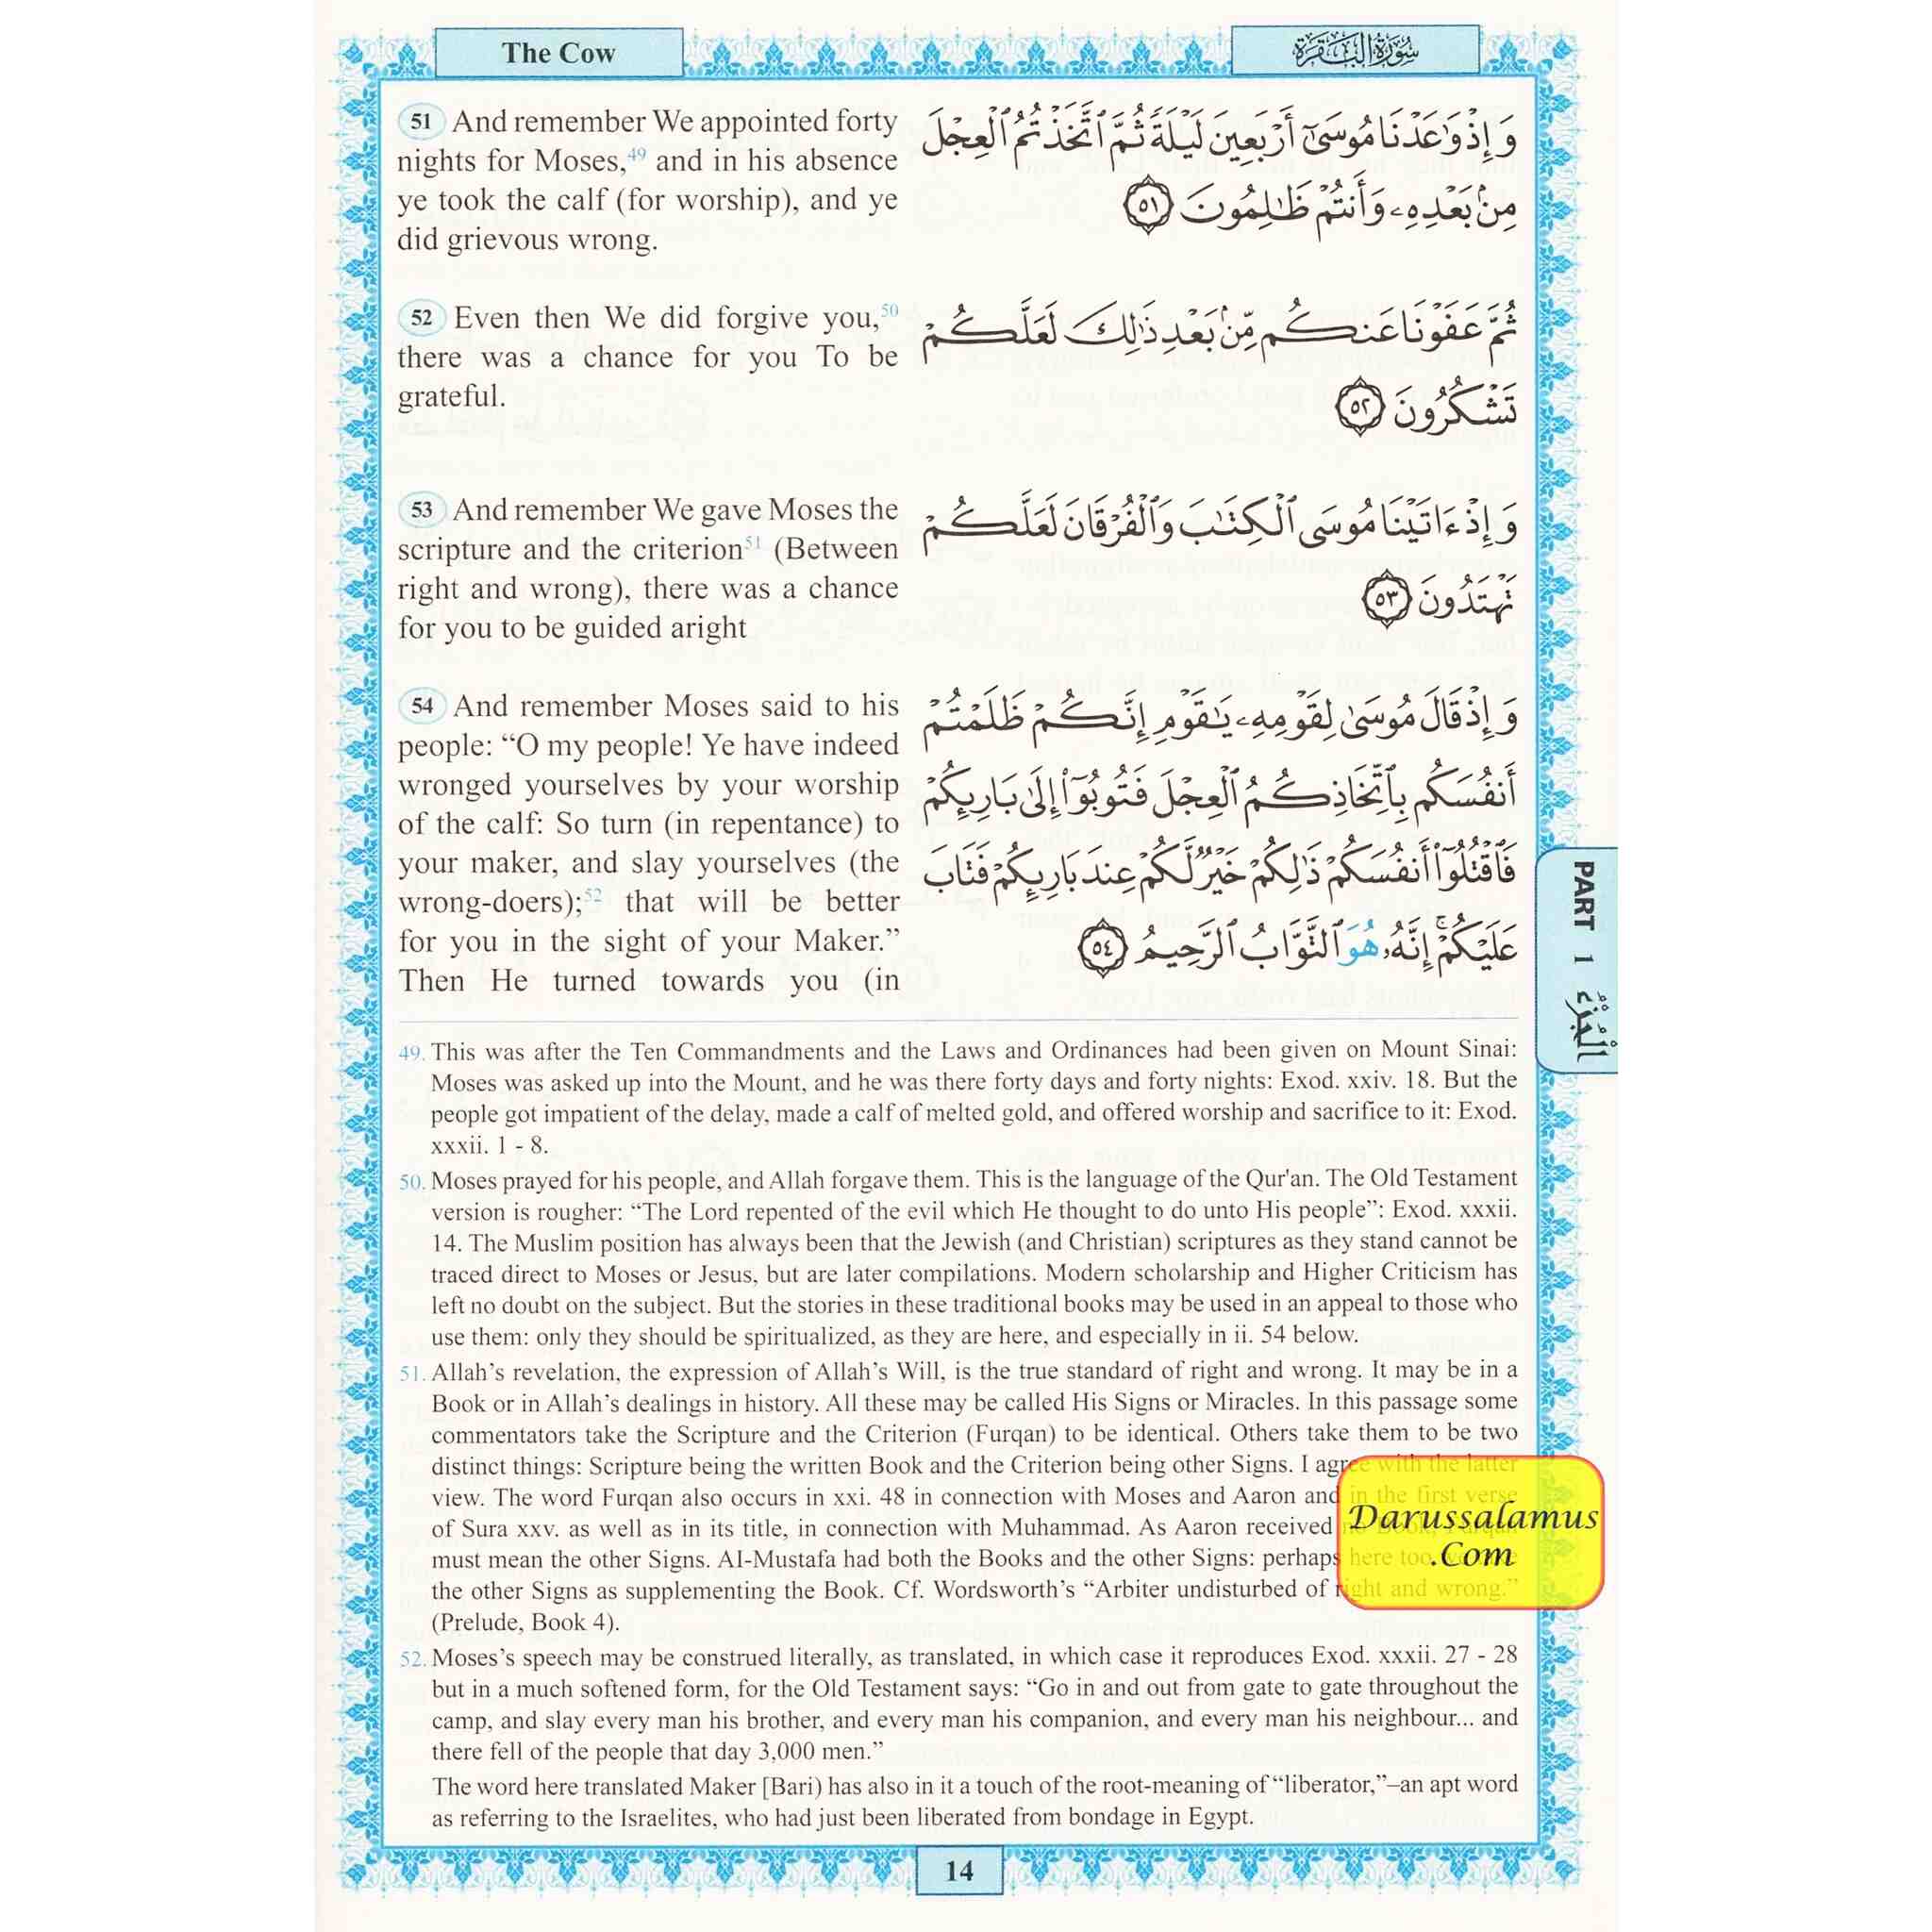 The Cow
سُورَةُ البَقَرَة
51 And remember We appointed forty
nights for Moses,49 and in his absence
ye took the calf (for worship), and ye
did grievous wrong.
وَإِذْ وَٰعَدْنَا مُوسَىٰٓ أَرْبَعِينَ لَيْلَةً ثُمَّ ٱتَّخَذْتُمُ ٱلْعِجْلَ
مِنۢ بَعْدِهِۦ وَأَنتُمْ ظَٰلِمُونَ ٥١
52 Even then We did forgive you,50
there was a chance for you To be
grateful.
ثُمَّ عَفَوْنَا عَنكُم مِّنۢ بَعْدِ ذَٰلِكَ لَعَلَّكُمْ
تَشْكُرُونَ ٥٢
53 And remember We gave Moses the
scripture and the criterion51 (Between
right and wrong), there was a chance
for you to be guided aright
وَإِذْ ءَاتَيْنَا مُوسَى ٱلْكِتَٰبَ وَٱلْفُرْقَانَ لَعَلَّكُمْ
تَهْتَدُونَ ٥٣
54 And remember Moses said to his
people: “O my people! Ye have indeed
wronged yourselves by your worship
of the calf: So turn (in repentance) to
your maker, and slay yourselves (the
wrong-doers);52 that will be better
for you in the sight of your Maker.”
Then He turned towards you (in
وَإِذْ قَالَ مُوسَىٰ لِقَوْمِهِۦ يَٰقَوْمِ إِنَّكُمْ ظَلَمْتُمْ
أَنفُسَكُم بِٱتِّخَاذِكُمُ ٱلْعِجْلَ فَتُوبُوٓا۟ إِلَىٰ بَارِئِكُمْ
فَٱقْتُلُوٓا۟ أَنفُسَكُمْ ذَٰلِكُمْ خَيْرٌ لَّكُمْ عِندَ بَارِئِكُمْ فَتَابَ
عَلَيْكُمْ ۚ إِنَّهُۥ هُوَ ٱلتَّوَّابُ ٱلرَّحِيمُ ٥٤
PART 1 الْجُزْءُ
49. This was after the Ten Commandments and the Laws and Ordinances had been given on Mount Sinai:
Moses was asked up into the Mount, and he was there forty days and forty nights: Exod. xxiv. 18. But the
people got impatient of the delay, made a calf of melted gold, and offered worship and sacrifice to it: Exod.
xxxii. 1 - 8.
50. Moses prayed for his people, and Allah forgave them. This is the language of the Qur'an. The Old Testament
version is rougher: “The Lord repented of the evil which He thought to do unto His people”: Exod. xxxii.
14. The Muslim position has always been that the Jewish (and Christian) scriptures as they stand cannot be
traced direct to Moses or Jesus, but are later compilations. Modern scholarship and Higher Criticism has
left no doubt on the subject. But the stories in these traditional books may be used in an appeal to those who
use them: only they should be spiritualized, as they are here, and especially in ii. 54 below.
51. Allah’s revelation, the expression of Allah’s Will, is the true standard of right and wrong. It may be in a
Book or in Allah’s dealings in history. All these may be called His Signs or Miracles. In this passage some
commentators take the Scripture and the Criterion (Furqan) to be identical. Others take them to be two
distinct things: Scripture being the written Book and the Criterion being other Signs. I agree with the latter
view. The word Furqan also occurs in xxi. 48 in connection with Moses and Aaron and in the first verse
of Sura xxv. as well as in its title, in connection with Muhammad. As Aaron received
must mean the other Signs. AI-Mustafa had both the Books and the other Signs: perhaps here too
the other Signs as supplementing the Book. Cf. Wordsworth’s “Arbiter undisturbed of right and wrong.”
(Prelude, Book 4).
52. Moses’s speech may be construed literally, as translated, in which case it reproduces Exod. xxxii. 27 - 28
but in a much softened form, for the Old Testament says: “Go in and out from gate to gate throughout the
camp, and slay every man his brother, and every man his companion, and every man his neighbour... and
there fell of the people that day 3,000 men.”
The word here translated Maker [Bari) has also in it a touch of the root-meaning of “liberator,”–an apt word
as referring to the Israelites, who had just been liberated from bondage in Egypt.
Darussalamus
.Com
14